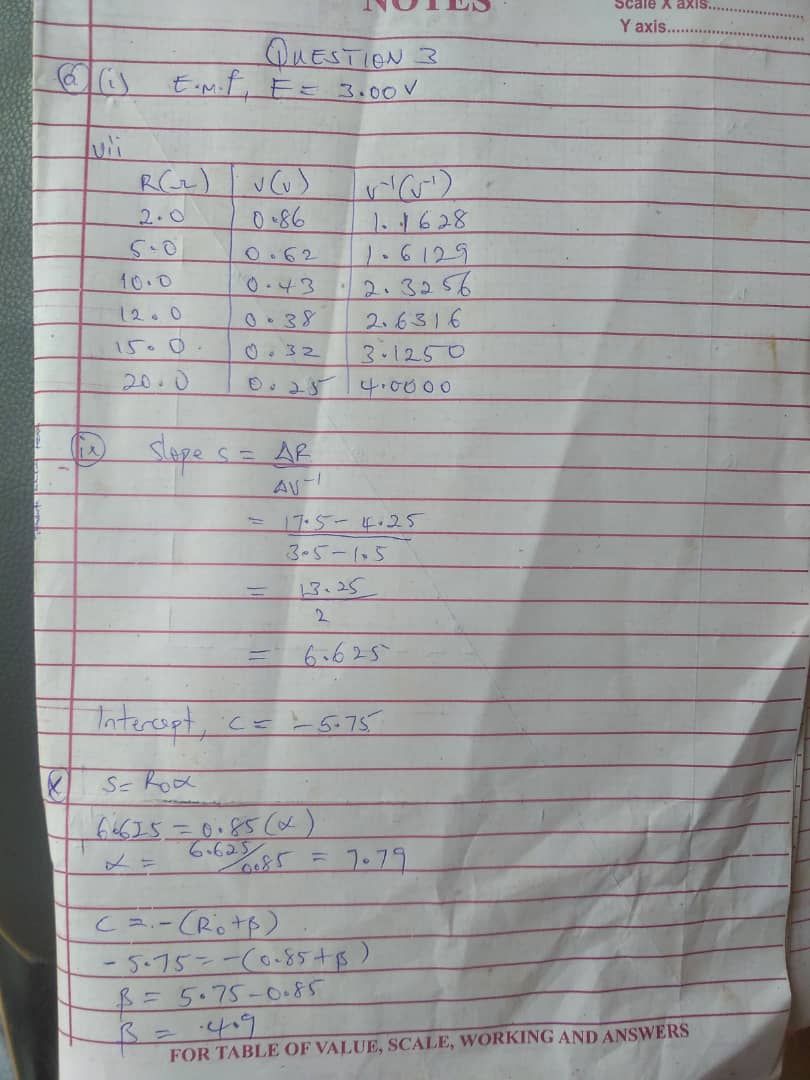 NOTES
Scale X axis..................
Y axis..................
QUESTION 3
(a) (i) E.m.f, E = 3.00V
vii
R(Ω) V(v) V⁻¹(V⁻¹)
2.0 0.86 1.1628
5.0 0.62 1.6129
10.0 0.43 2.3256
12.0 0.38 2.6316
15.0. 0.32 3.1250
20.0 0.25 4.0000
(ix) Slope s = ΔR
ΔV⁻¹
= 17.5 - 4.25
3.5 - 1.5
= 13.25
2
= 6.625
Intercept, c = -5.75
(x) S = R₀α
6.625 = 0.85(α)
α = 6.625/0.85 = 7.79
C = -(R₀+β)
-5.75 = -(0.85+β)
β = 5.75-0.85
β = 4.9
FOR TABLE OF VALUE, SCALE, WORKING AND ANSWERS